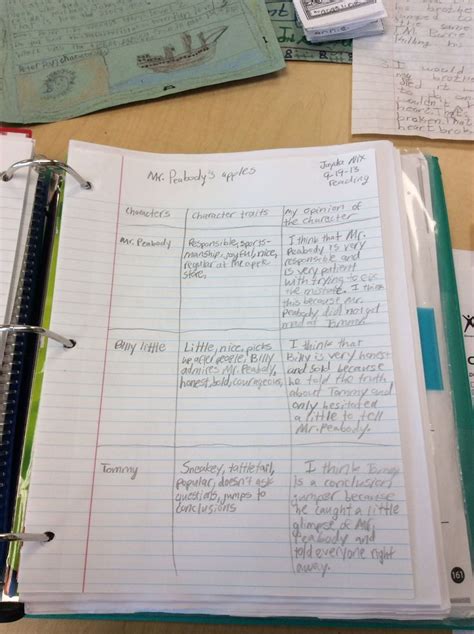 annie
I would
Mr. Peabody's apples
Jayda Nix
9-19-13
Reading
Characters
Character traits
my opinion of the character
Mr. Peabody
Responsible, sports-
manship, joyful, nice,
regular at the apple
store.
I think that Mr.
Peabody is very
responsible and
is very patient
with trying to
the mistake. I think
this because Mr.
Peabody did not get
mad at Tommy.
Billy little
Little, nice, picks
up after people. Billy
admires Mr. Peabody,
honest, bold, courageous,
I think that
Billy is very honest
and because
he told the truth
about Tommy and
only hesitated
a little to tell
Mr. Peabody.
Tommy
Sneakey, tattletail,
popular, doesn't ask
questions, jumps to
conclusions
I think Tommy
is a conclusion
jumper because
he caught a little
glimpse of Mr.
Peabody and
told everyone right
away.
161